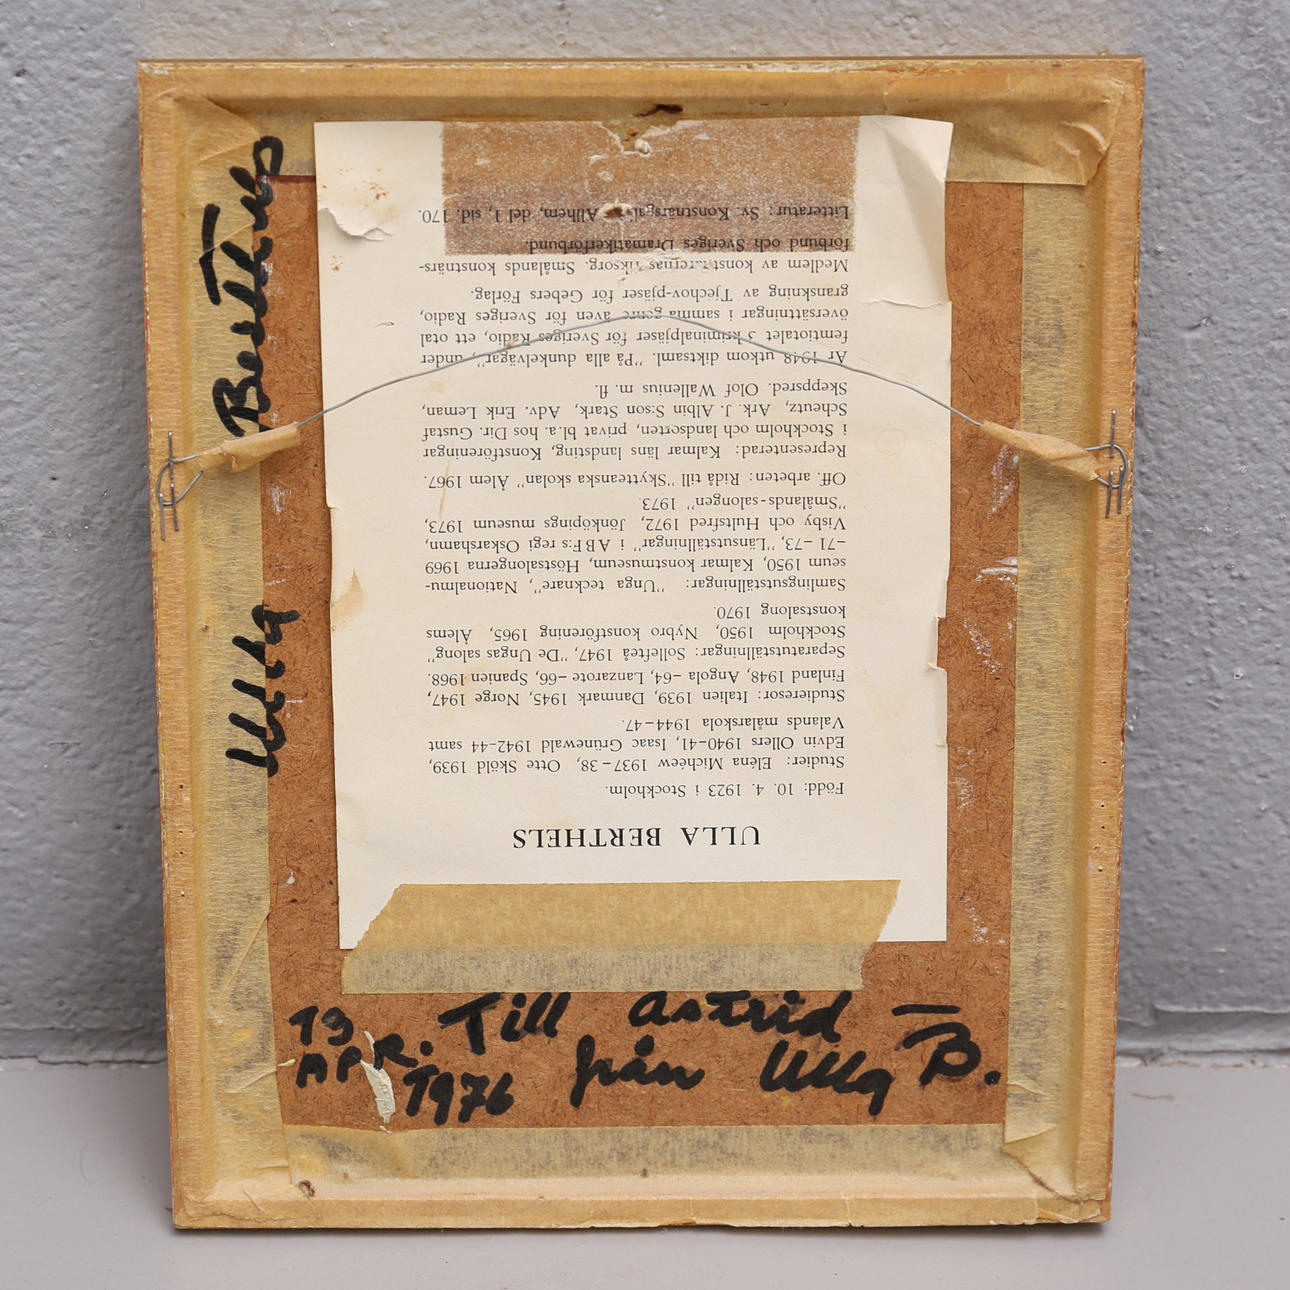 ULLA BERTHELS
Född: 10. 4. 1923 i Stockholm.
Studier: Eléna Michéew 1937–38, Otte Sköld 1939,
Edvin Ollers 1940-41, Isaac Grünewald 1942-44 samt
Valands målarskola 1944–47.
Studieresor: Italien 1939, Danmark 1945, Norge 1947,
Finland 1948, Angola –64, Lanzarote –66, Spanien 1968.
Separatutställningar: Sollefteå 1947, ”De Ungas salong”
Stockholm 1950, Nybro konstförening 1965, Ålems
konstsalong 1970.
Samlingsutställningar: ”Unga tecknare”, Nationalmu-
seum 1950, Kalmar konstmuseum, Höstsalongerna 1969
–71 –73, ”Länsutställningar” i ABF:s regi Oskarshamn,
Visby och Hultsfred 1972, Jönköpings museum 1973,
”Smålands-salongen” 1973.
Off. arbeten: Ridå till ”Skytteanska skolan” Ålem 1967.
Representerad: Kalmar läns landsting, Konstföreningar
i Stockholm och landsorten, privat bl.a. hos Dir. Gustaf
Scheutz, Ark. J. Albin S:son Stark, Adv. Erik Leman,
Skeppsred. Olof Wallenius m. fl.
År 1948 utkom diktsaml. ”På alla dunkelvägar”, under
femtiotalet 3 kriminalpjäser för Sveriges Radio, ett otal
översättningar i samma genre även för Sveriges Radio,
granskning av Tjechov-pjäser för Gebers Förlag.
Medlem av konstnärernas riksorg. Smålands konstnärs-
förbund och Sveriges Dramatikerförbund.
Litteratur: Sv. Konstnärsgalleri Allhem, del 1, sid. 170.
Ulla Berthels
13 Till Astrid –
APR. från Ulla B.
1976